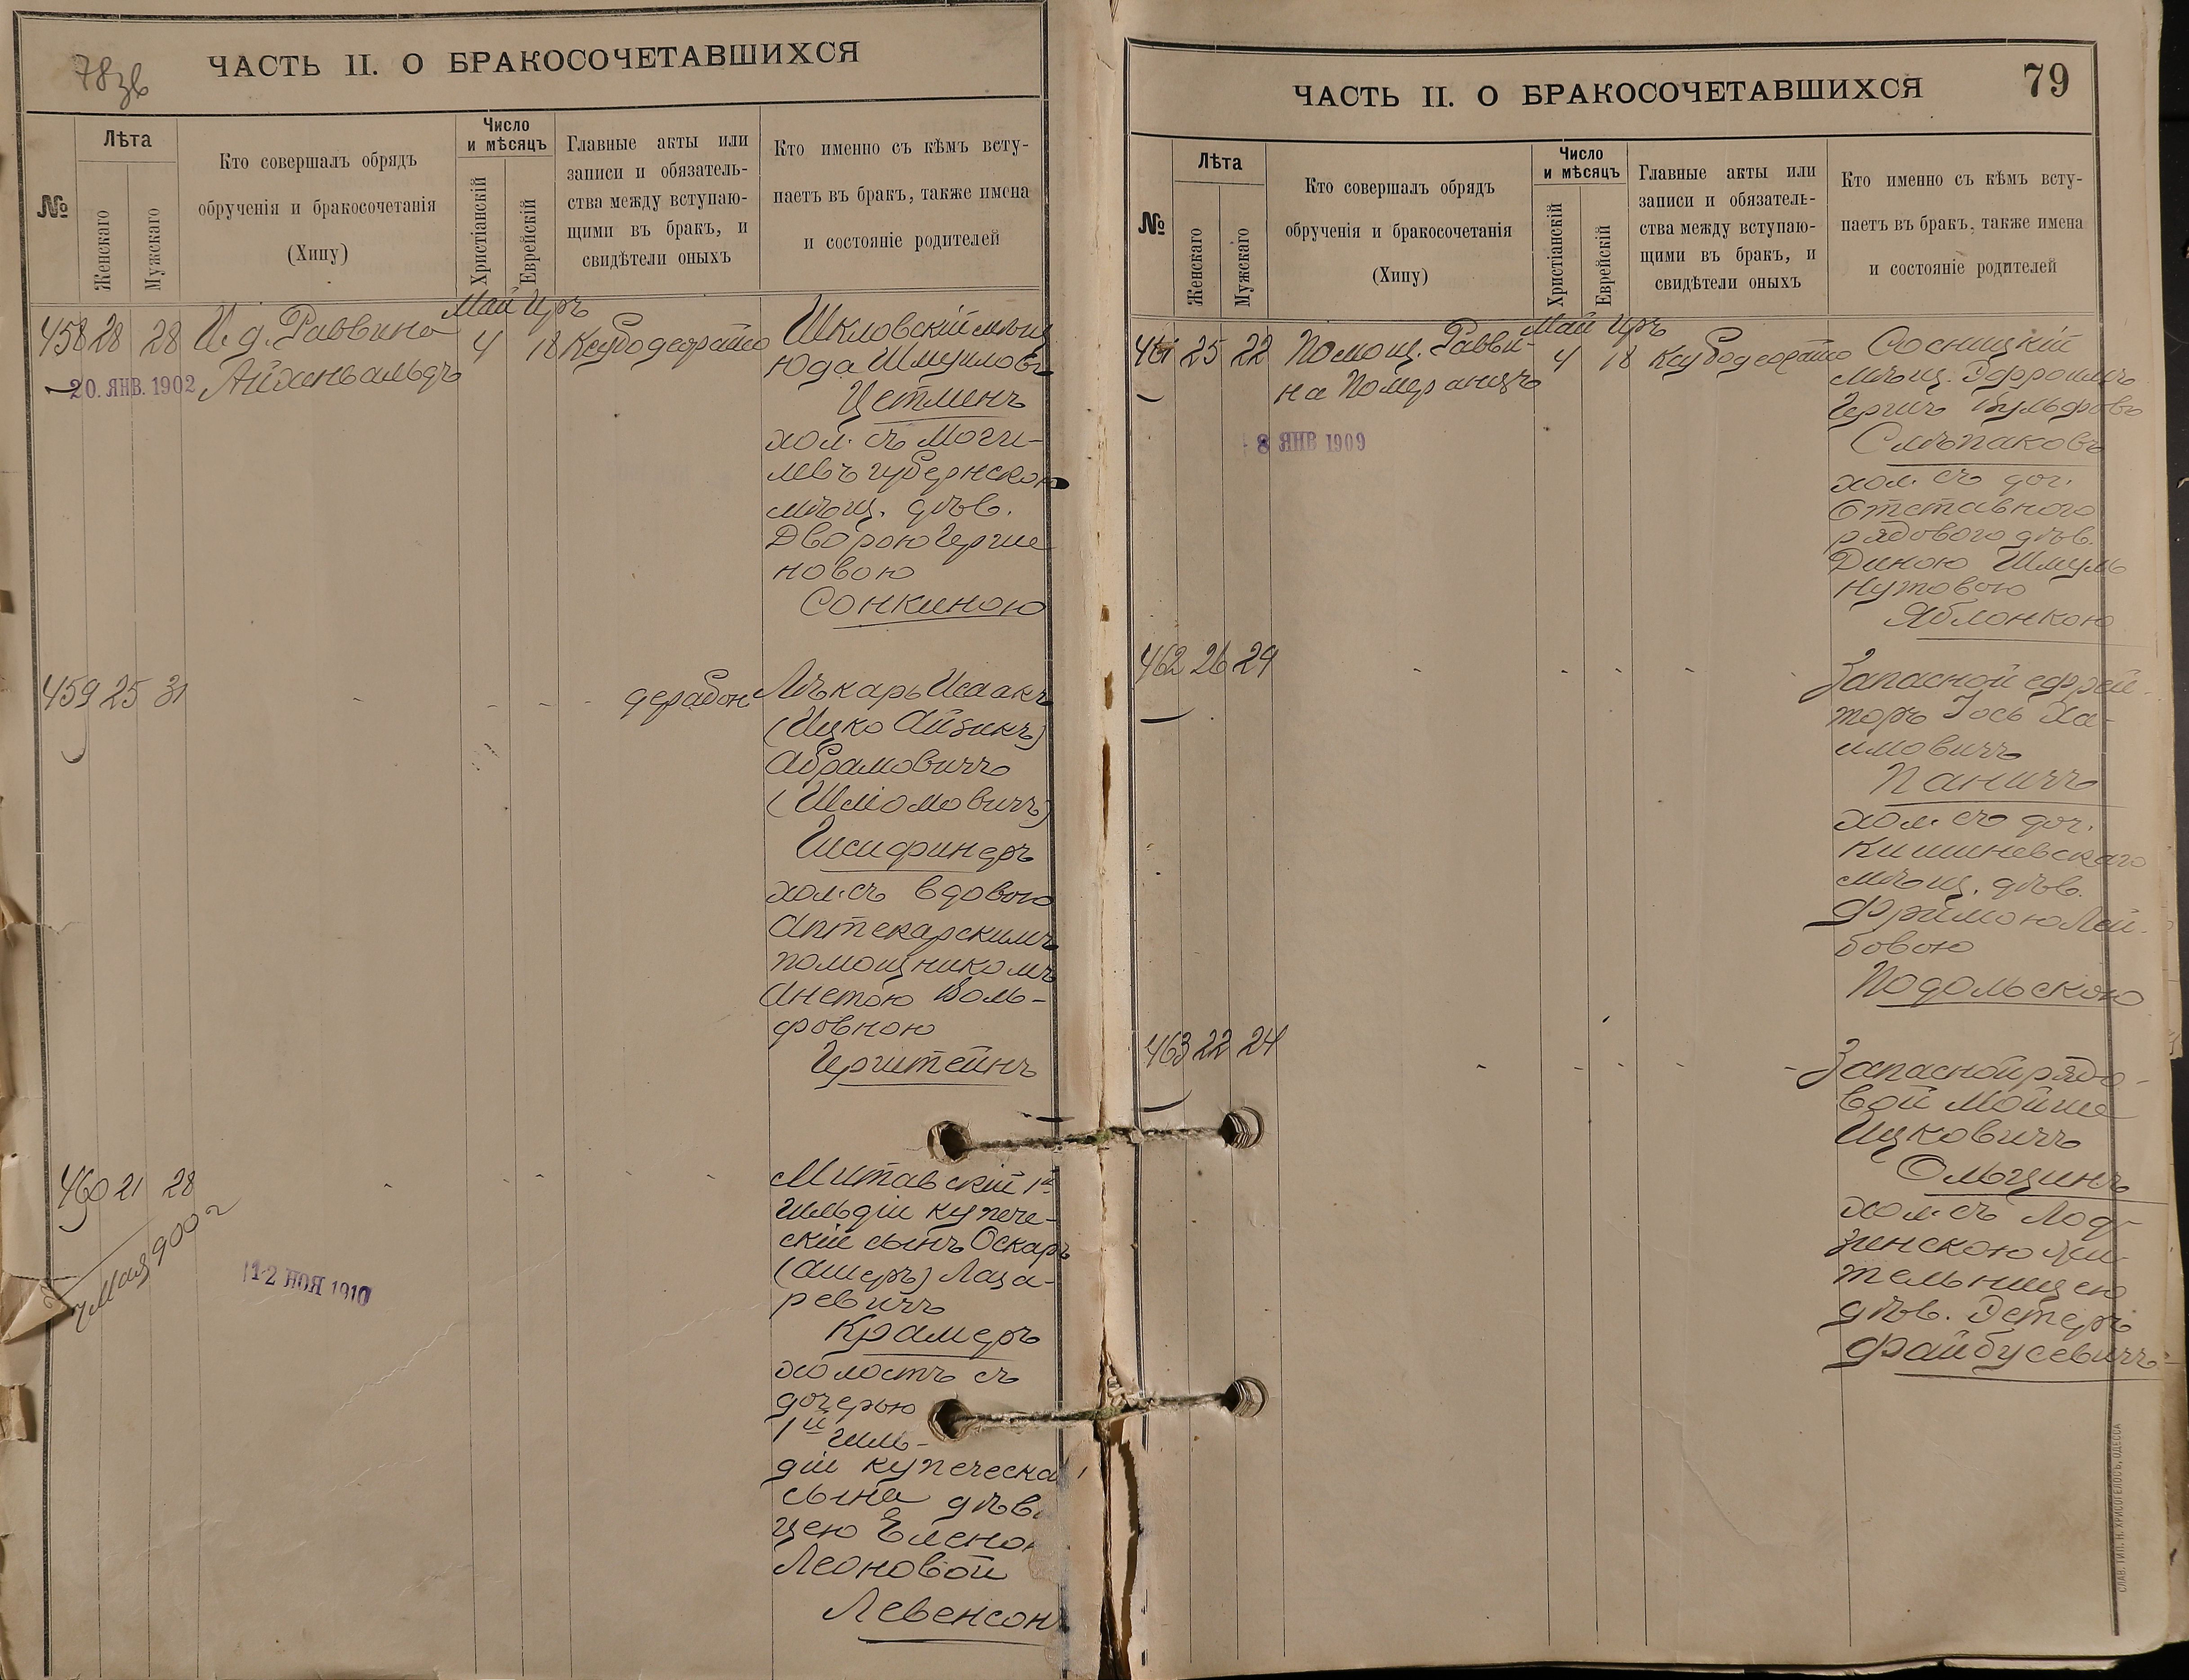 78зв
ЧАСТЬ II. О БРАКОСОЧЕТАВШИХСЯ
№
Лѣта
Женскаго
Мужскаго
Кто совершалъ обрядъ
обрученія и бракосочетанія
(Хипу)
Число
и мѣсяцъ
Христіанскій
Еврейскій
Главные акты или
записи и обязатель-
ства между вступаю-
щими въ бракъ, и
свидѣтели оныхъ
Кто именно съ кѣмъ всту-
паетъ въ бракъ, также имена
и состояніе родителей
Май Иръ
458 28 28 И. д. Раввина 4 18
Айхенвальдъ
20. ЯНВ. 1902
Шкловскій мѣщ
Юда Шмуиловъ
Цетлинъ
хол. съ Моги-
левъ губернскою
мѣщ. дѣв.
Дворою Герше
новою
Сонкиною
459 25 31 - - -
Лѣкарь Исаакъ
(Ицко Айзикъ)
Абрамовичъ
(Шліомовичъ)
хол. съ вдовою
Аптекарскимъ
помощникомъ
Анетою Воль-
фовною
Герштейнъ
460 21 28 - - - - -
4 Мая 900 г
12 НОЯ 1910
Митавскій 1й
гильдіи купече-
скій сынъ Оскаръ
(Ашеръ) Лаза-
ревичъ
Крамеръ
холостъ съ
дочерью
1й гиль-
діи купеческа
сына дѣви
цею Елено
Леоновой
Левенсонъ
ЧАСТЬ II. О БРАКОСОЧЕТАВШИХСЯ
79
№
Лѣта
Женскаго
Мужскаго
Кто совершалъ обрядъ
обрученія и бракосочетанія
(Хипу)
Число
и мѣсяцъ
Христіанскій
Еврейскій
Главные акты или
записи и обязатель-
ства между вступаю-
щими въ бракъ, и
свидѣтели оныхъ
Кто именно съ кѣмъ всту-
паетъ въ бракъ, также имена
и состояніе родителей
Май Иръ
461 25 22 Помощ. Равви- 4 18
на Померанцъ
8 ЯНВ 1909
Сосницкій
мѣщ. Эфроимъ
Гершъ Вульфовъ
Слѣпаковъ
хол. съ доч.
Отставного
рядового дѣв.
Диною Шмуль
Нутовою
Яблонкою
462 26 29 - - - -
Запасной ефрей-
торъ Іось Ха-
имовичъ
Паничъ
хол. съ доч.
Кишиневскаго
мѣщ. дѣв.
Фримою Лей-
бовою
Подольскою
463 22 24 - - - - -
Запасной рядо-
вой Мойше
Ицковичъ
Ольцинъ
хол. съ Лод-
зинскою жи-
тельницею
дѣв. Эстеръ
Файбусевичъ
СЛАВ. ТИП. Н. ХРИСОГЕЛОСЪ, ОДЕССА